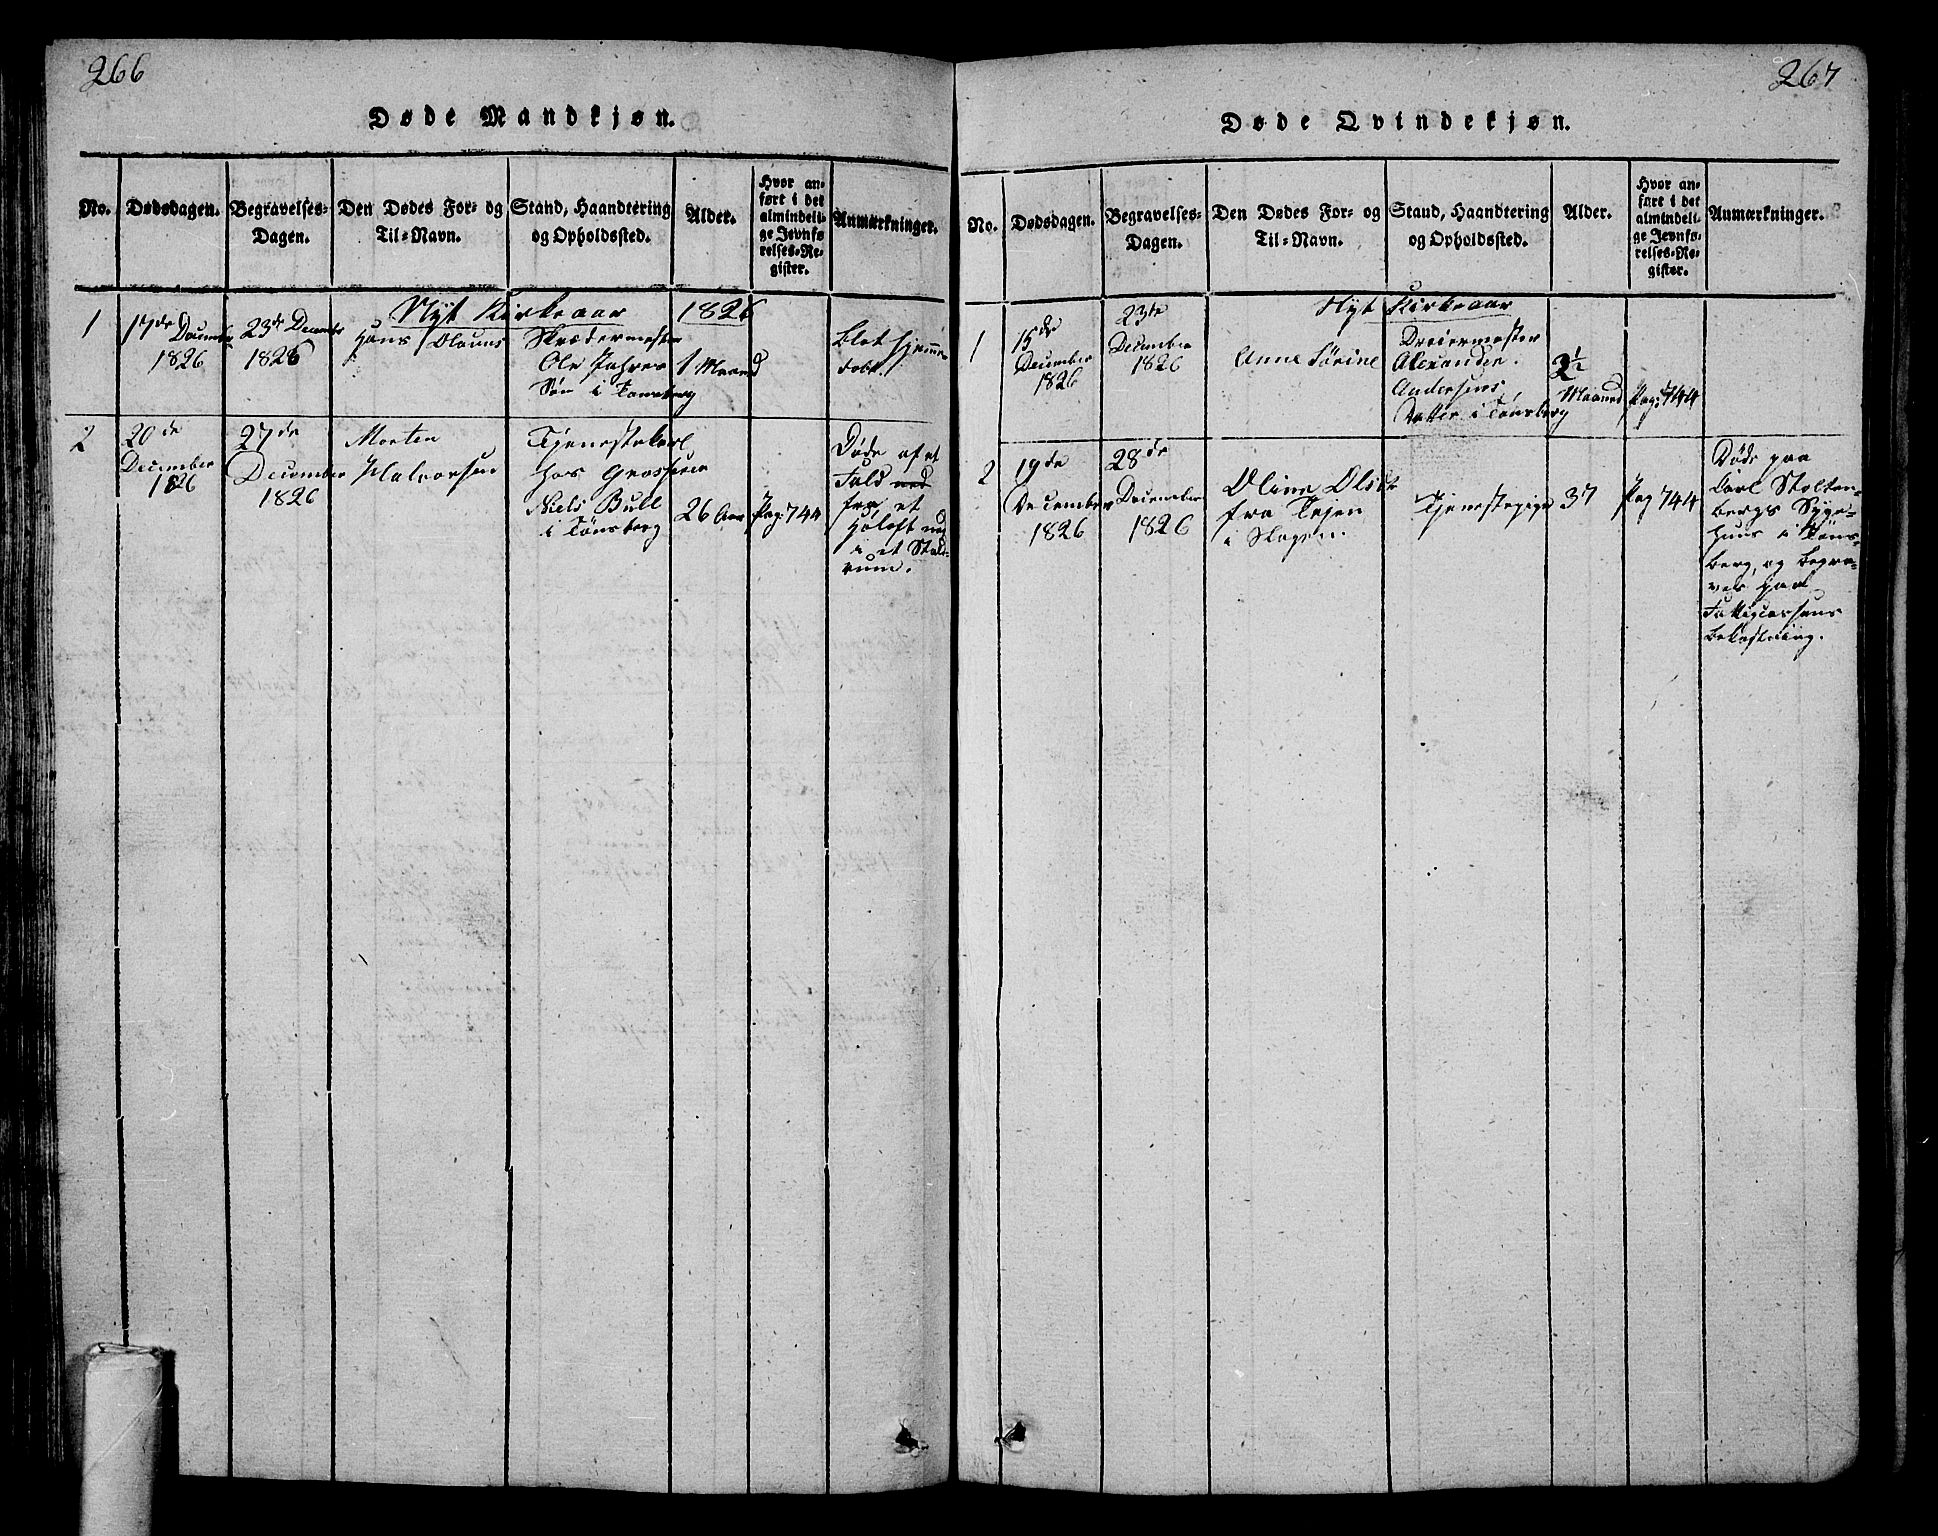 266
Døde Mandkjøn.
No.
Dødsdagen.
Begravelses-
Dagen.
Den Dødes For- og
Til-Navn.
Stand, Haandtering
og Opholdssted.
Alder.
Hvor an-
ført i det
almindeli-
ge Jevnfø
relses-Re
gister.
Anmærkninger.
Nyt Kirkeaar 1826
1
17de Decembr
1826
23de Decembr
1826
Hans Olaus
Skrædermester
Ole
Søn i Tønsberg
1 Maaned
Blot hjemme
døbt.
2
20de
December
1826
27de
December
1826
Morten
Halvorsen
Tjenestekarl
hos Grosserer
Niels Bull
i Tønsberg
26 Aar
Pag: 744
Døde af et
Fald ned
fra et
Høloft ned
i et Stald-
rum.
267
Døde Qvindekjøn.
No.
Dødsdagen.
Begravelses-
Dagen.
Den Dødes For- og
Til-Navn.
Stand, Haandtering
og Opholdssted.
Alder.
Hvor an-
ført i det
almindeli-
ge Jevnfø-
relses-Re-
gister.
Anmærkninger.
Nyt Kirkeaar
1
15de
December
1826
23de
December
1826
Anne Sørine
Dreiermester
Alexander
Andersens
Datter i Tønsberg
2½
Maaned
Pag: 744
2
19de
December
1826
28de
December
1826
Oline Olsdr
fra Tejen
i Slagen.
Tjenestepige
37
Pag 744
Døde paa
Carl Stolten-
bergs Syge-
huus i Tøns-
berg, og begra-
ves paa
Fattigcassens
Bekostning.